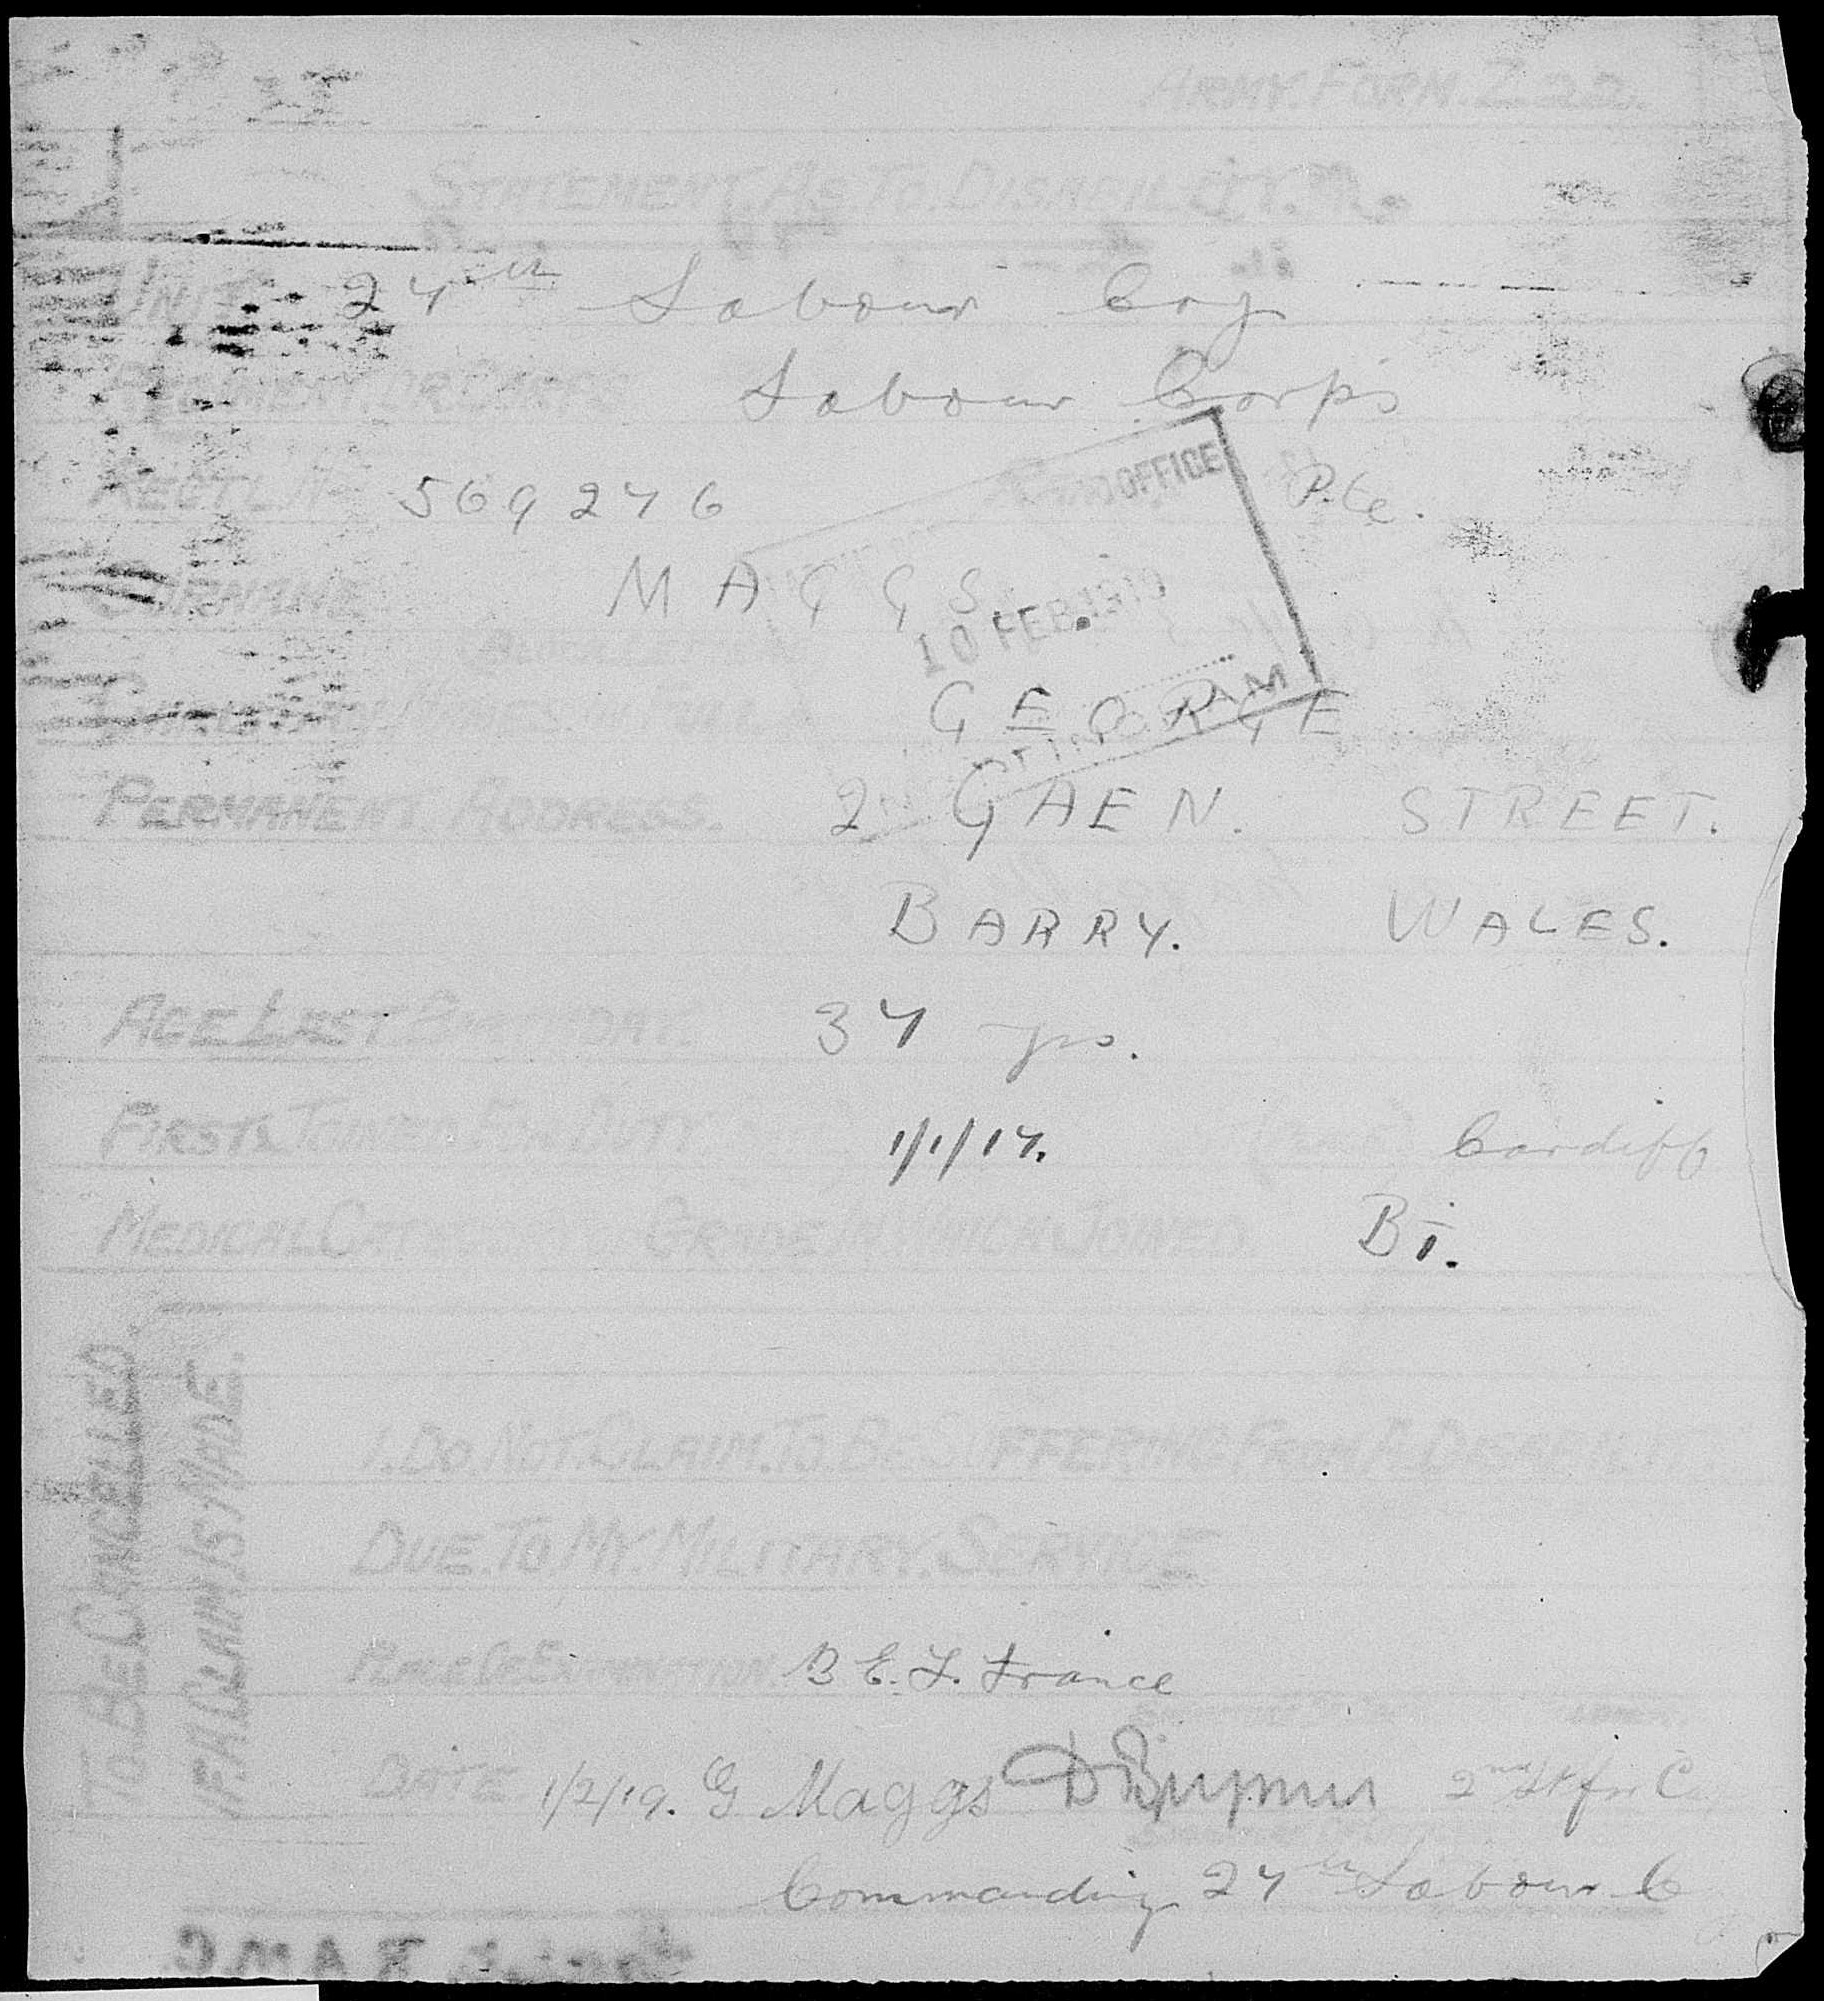 ARMY. FORM. Z 22.
STATEMENT. AS. TO. DISABILITY.
UNIT 27th Labour Coy
REGIMENT OR CORPS Labour Corps
REGTL. No 569276 Pte.
SURNAME MAGGS.
OFFICE
10 FEB 1919
GEORGE
PERMANENT ADDRESS. 2 GAEN. STREET.
BARRY. WALES.
AGE LAST BIRTHDAY. 37 yrs.
FIRST JOINED FOR DUTY 1/1/17. Cardiff
MEDICAL CATEGORY GRADE IN WHICH JOINED. BI.
TO BE CANCELLED.
IF A CLAIM IS MADE.
I. DO. NOT. CLAIM. TO. BE SUFFERING FROM A DISABILITY
DUE. TO. MY. MILITARY. SERVICE
PLACE OF EXAMINATION. B E. F. France
DATE 1/2/19. G Maggs 2nd Lt for
Commanding 27th Labour C
R.A.M.C.